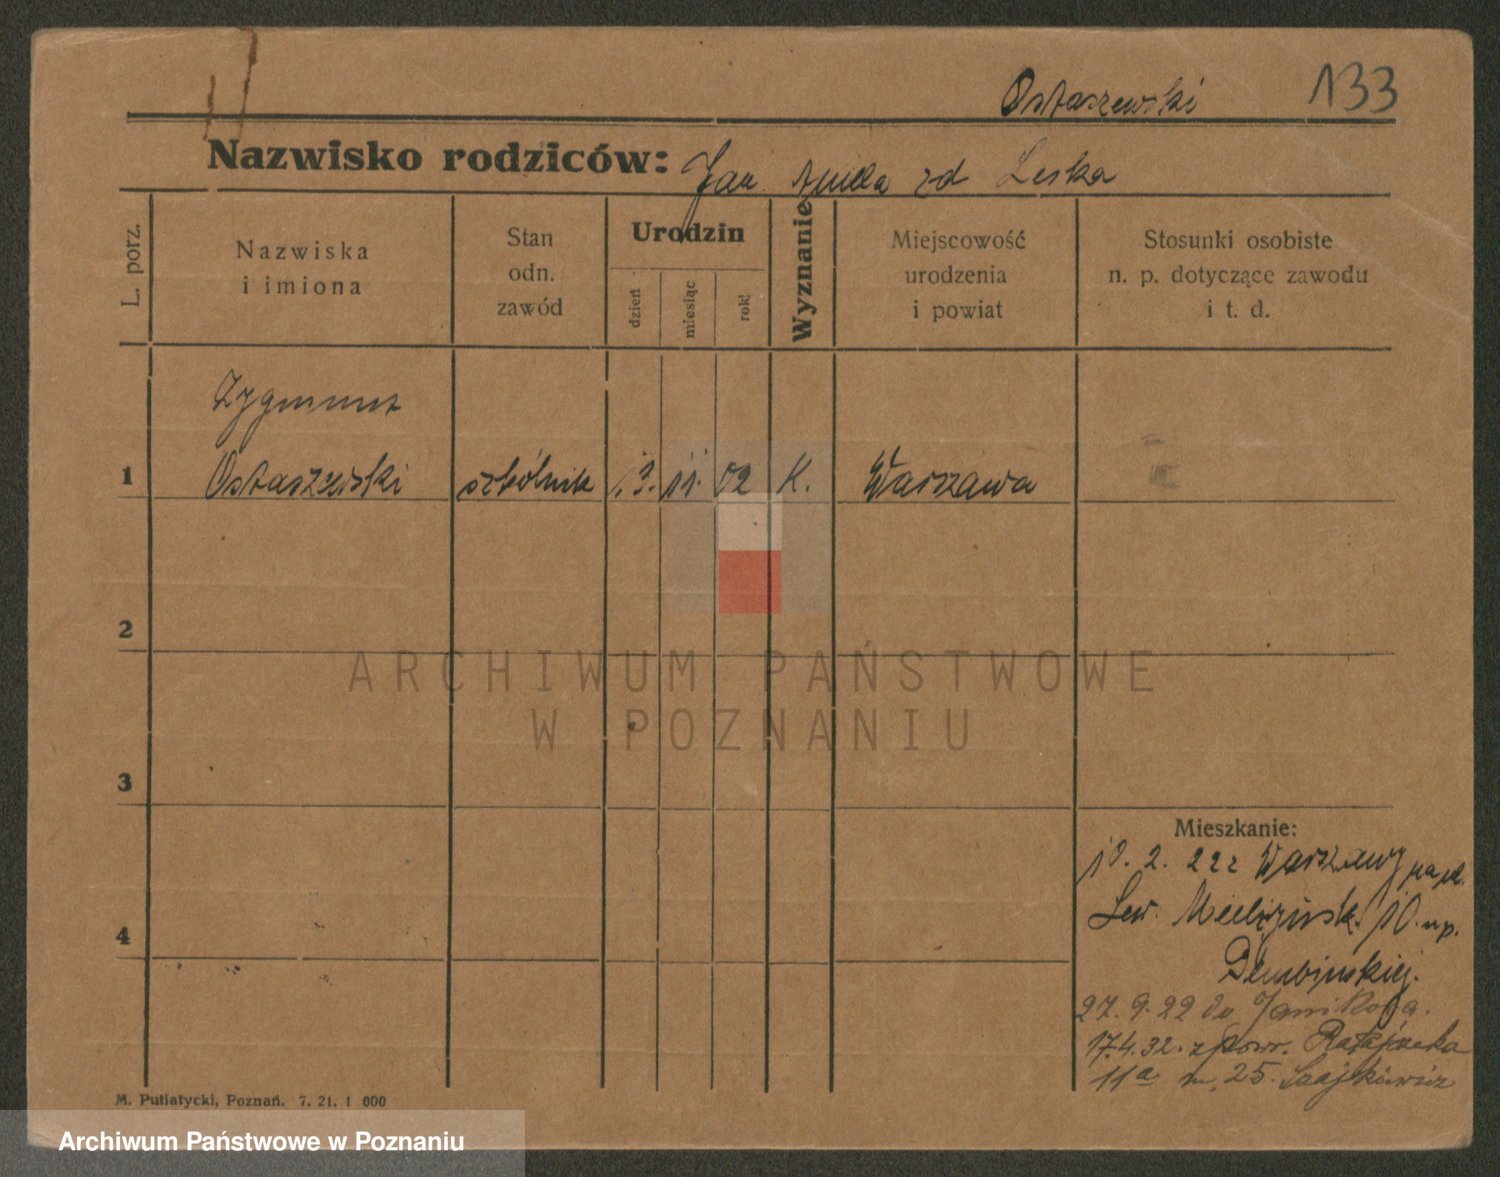 Ostaszewski 133
Nazwisko rodziców: Jan Aniela zd Leska
L. porz.
Nazwiska
i imiona
Stan
odn.
zawód
Urodzin
dzień
miesiąc
rok
Wyznanie
Miejscowość
urodzenia
i powiat
Stosunki osobiste
n. p. dotyczące zawodu
i t. d.
Zygmunt
1 Ostaszewski szkólnik 13. 11. 02 K. Warszawa
2
3
4
Mieszkanie:
10. 2. 22 z Warszawy
Sew. Mielżyńsk. 10. u p.
Dembińskiej.
27. 9. 22 do Janikowa.
17.4.32. z pow. Ratajczaka
11a m. 25.
M. Putiatycki, Poznań. 7. 21. 1 000
ARCHIWUM PAŃSTWOWE
W POZNANIU
Archiwum Państwowe w Poznaniu